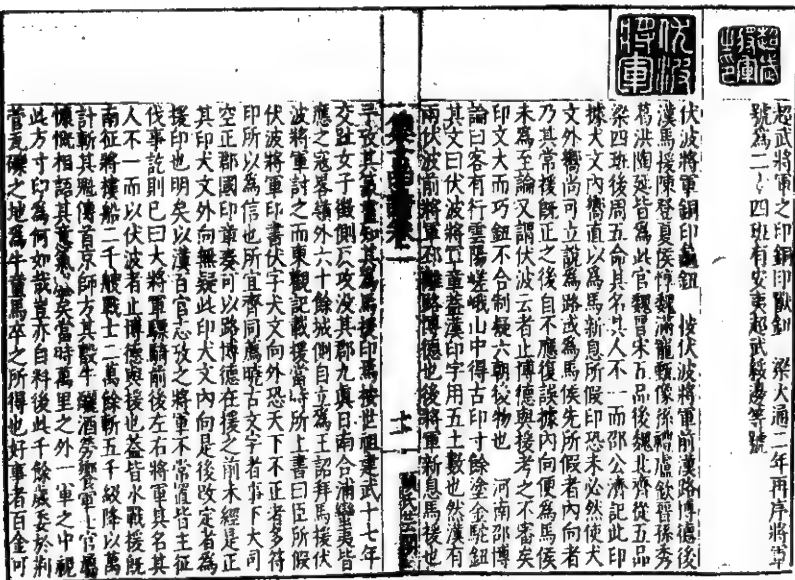 超武將軍之印
超武將軍之印銅印獸鈕　梁大通二年再序將軍
號為二〻四班有安夷超武綏邊等號
伏波將軍
伏波將軍銅印龜鈕　按伏波將軍前漢路博德後
漢馬援陳登夏侯惇魏滿寵甄像孫禮盧欽晉孫秀
葛洪陶延皆為此官魏晉宋五品後魏北齊從五品
梁四班後周五命其名其人不一而邵公濟記此印
據犬文內嚮直以為馬新息所假印恐未必然使犬
文外嚮尚可立說為路或為馬侯先所假者內向者
乃其常援既正之後自不應復誤據內向便為馬侯
未為至論又謂伏波云者止博德與援考之不審矣
印文大而巧鈕不合制疑六朝後物也　河南邵博
論曰客有行雲陽嵯峨山中得古印寸餘塗金駝鈕
其文曰伏波將軍章蓋漢印字用五土數也然漢有
兩伏波前將軍邳離路博德也後將軍新息馬援也
十一
予攷其篆畫知其為馬援印焉按世祖建武十七年
交趾女子徵側反攻沒其郡九真日南合浦蠻夷皆
應之寇畧嶺外六十餘城側自立為王詔拜馬援伏
波將軍討之而東觀記載援當時所上書曰臣所假
伏波將軍印書伏字犬文向外恐天下不正者多符
印所以為信也所宜齊同薦曉古文字者事下大司
空正郡國印章奏可以路博德在援之前未經是正
其印犬文外向無疑此印犬文內向是後改定者為
援印也明矣以漢百官志攷之將軍不常置皆主征
伐事訖則已曰大將軍驃騎前後左右將軍其名其
人不一而以伏波者止博德與援也蓋皆水戰援既
南征將樓船二千艘戰士二萬餘斬五千級降以萬
計斬其魁傳首京師方其擊牛釃酒勞饗軍士官屬
慷慨相語其意氣偉矣當時萬里之外一軍之中視
此方寸印為何如哉豈亦自料後此千餘歲委於荆
菅瓦礫之地為牛童馬卒之所得也好事者百金可